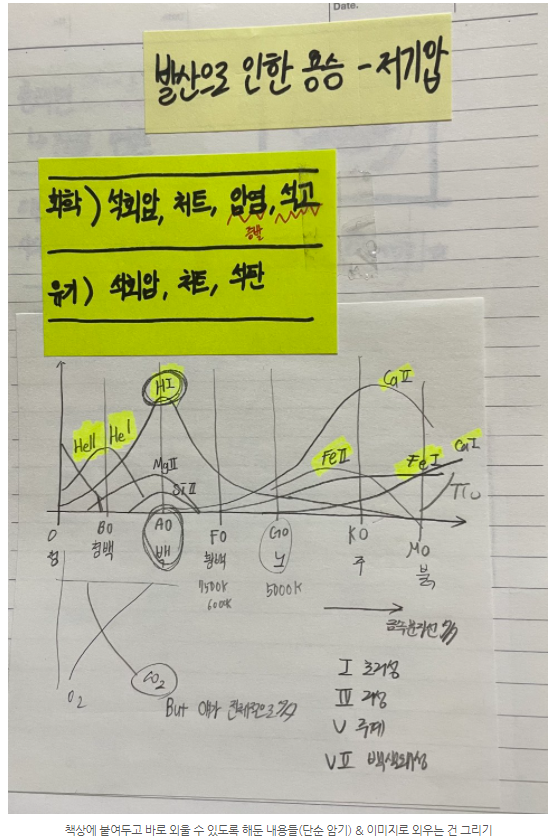 Date.
발산으로 인한 용승 - 저기압
화학) 석회암, 처트, 암염, 석고
증발
유기) 석회암, 처트, 석탄
HI
CaII
HeII HeI
MgII
SiII
FeII
FeI
CaI
TiO
O B0 A0 F0 G0 K0 M0
청 청백 백 황백 노 주 붉
7500K
6000K
5000K
O2
CO2
But 얘가
I 초거성
IV 거성
V 주계
VII 백색왜성
책상에 붙여두고 바로 외울 수 있도록 해둔 내용들(단순 암기) & 이미지로 외우는 건 그리기